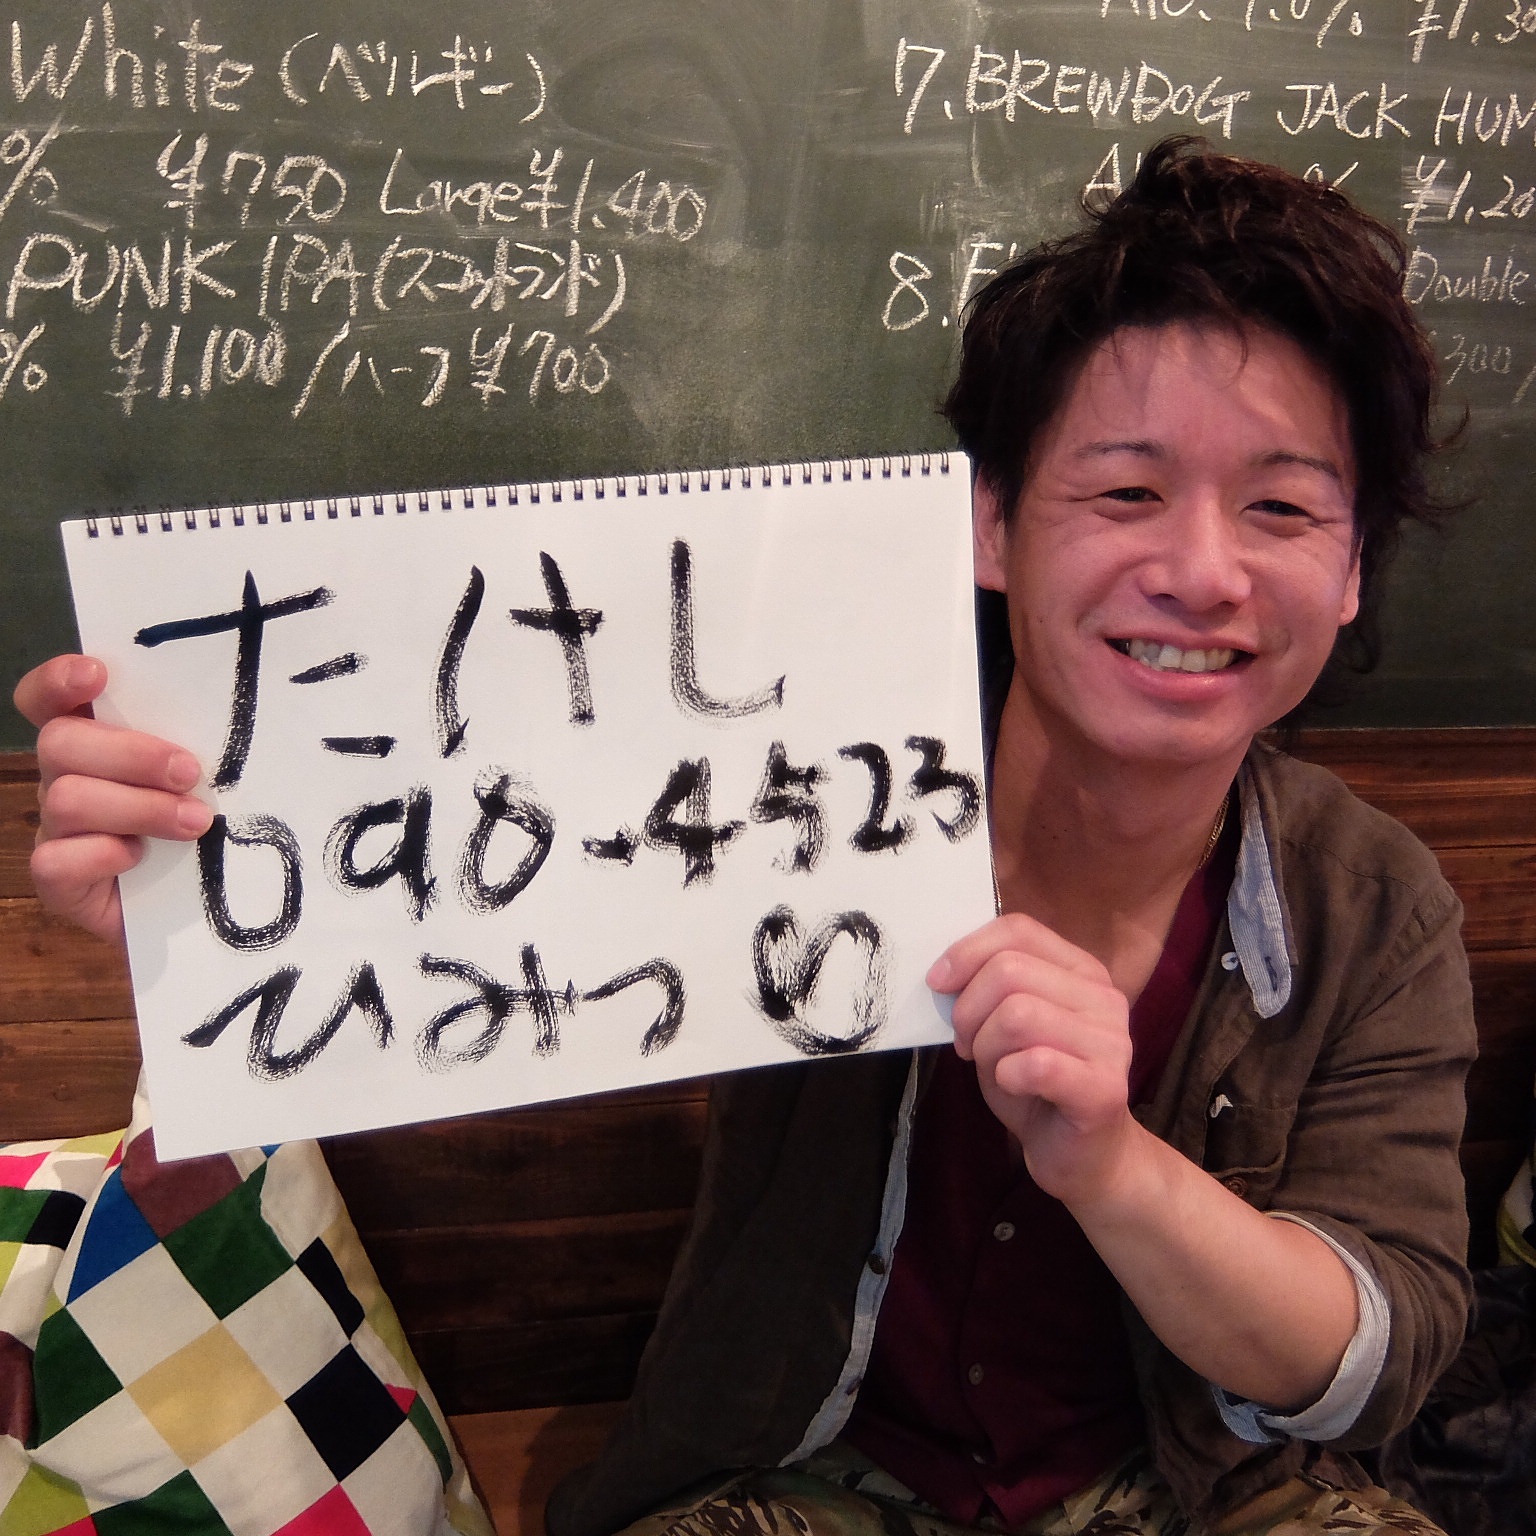 White (ベルギー)
% ¥750 Large ¥1.400
PUNK IPA (スコットランド)
% ¥1.100 / ハーフ ¥700
¥1.30
7. BREWDOG JACK HUM
% ¥1.20
8. Double
300/
たけし
090-4523
ひみつ♡